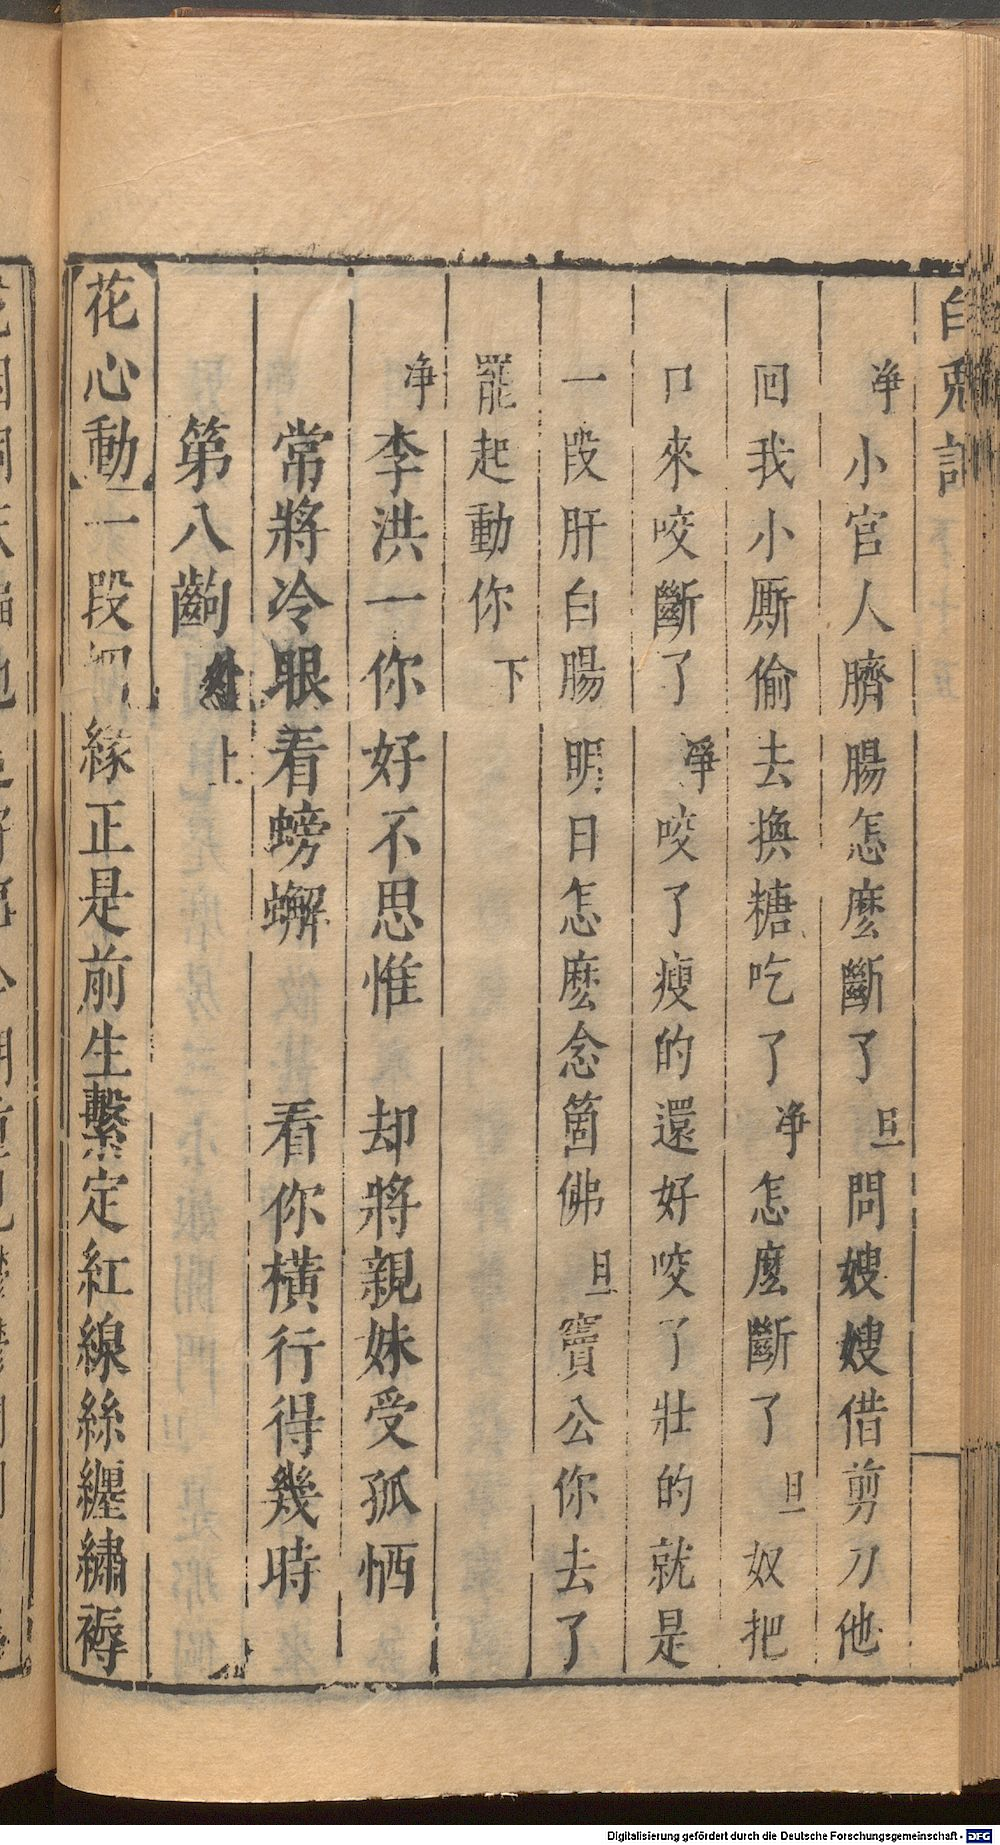 白兎記
净 小官人臍腸怎麽斷了 旦 問嫂嫂借剪刀他
回我小厮偷去換糖吃了 净 怎麽斷了 旦 奴把
口來咬斷了 爭 咬了瘦的還好咬了壯的就是
一段肝白腸明日怎麽念箇佛 旦 竇公你去了
罷起動你 下
净 李洪一你好不思惟 却將親妹受孤恓
常將冷眼看螃蠏 看你橫行得幾時
第八齣 上
花心動 一段 緣正是前生繫定紅線絲纏繡褥
Digitalisierung gefördert durch die Deutsche Forschungsgemeinschaft - DFG